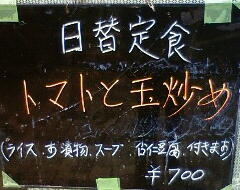 日替定食
トマトと玉炒め
(ライス、お漬物、スープ、杏仁豆腐、付きます
¥700